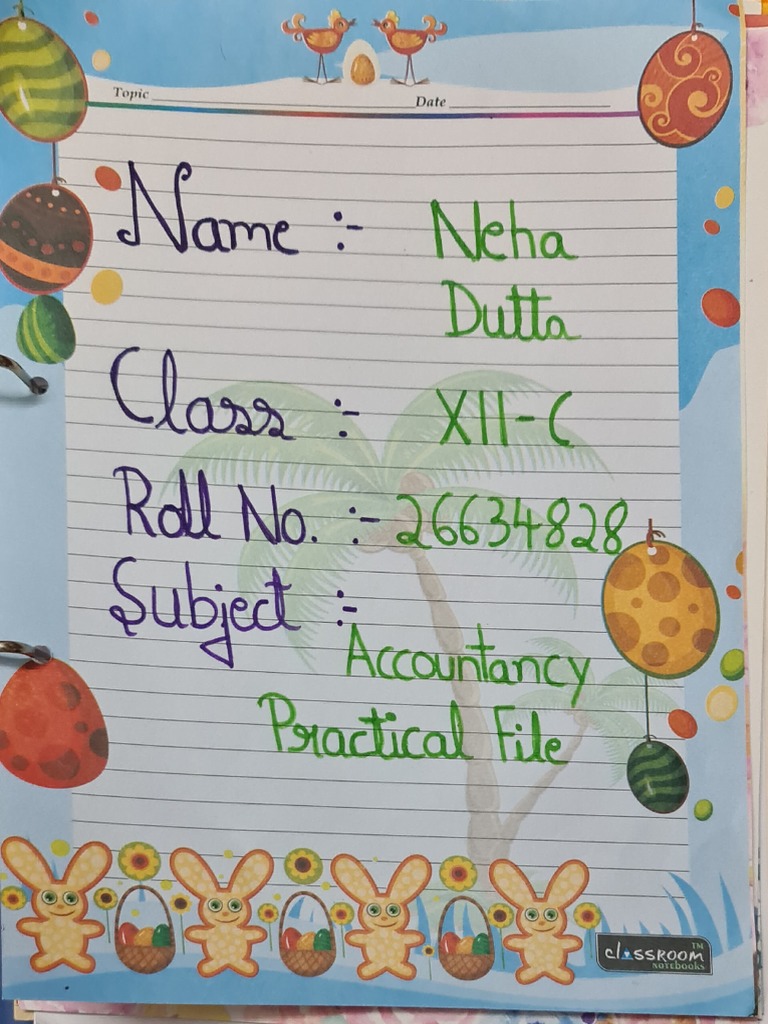 Topic Date
Name :- Neha
Dutta
Class :- XII-C
Roll No. :- 26634828
Subject :-
Accountancy
Practical File
classroom TM
notebooks